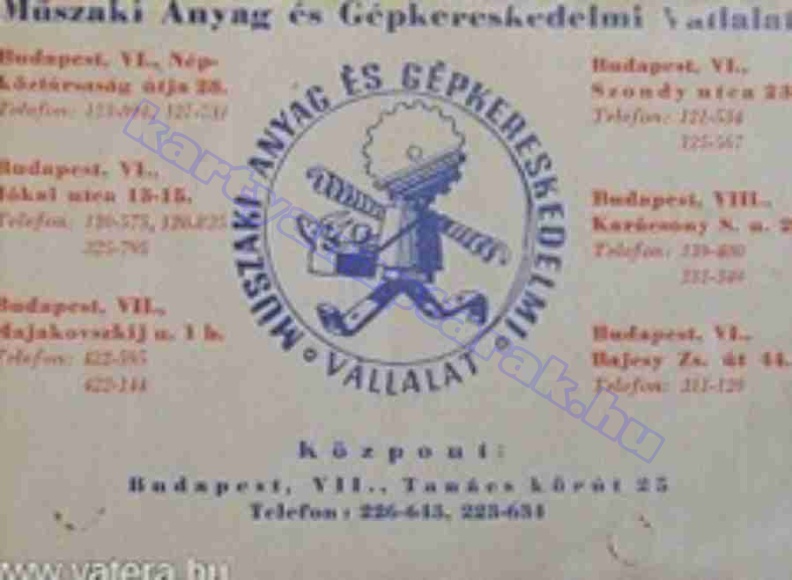 Műszaki Anyag és Gépkereskedelmi Vállalat
Budapest, VI., Nép-
köztársaság útja 28.
Telefon:
Budapest, VI.,
Jókai utca 13-15.
Telefon: 120-575, 120-825
325-795
Budapest, VII.,
Majakovszkij u. 1 b.
Telefon: 422-595
422-144
MŰSZAKI ANYAG ÉS GÉPKERESKEDELMI
VÁLLALAT
Budapest, VI.,
Szondy utca 23
Telefon: 121-534
125-567
Budapest, VIII.,
Karácsony S. u. 2
Telefon: 139-400
Budapest, VI.,
Bajcsy Zs. út 44.
Telefon: 311-129
Központ:
Budapest, VII., Tanács körút 25
Telefon: 226-645, 223-634
kartyavasarak.hu
www.vatera.hu